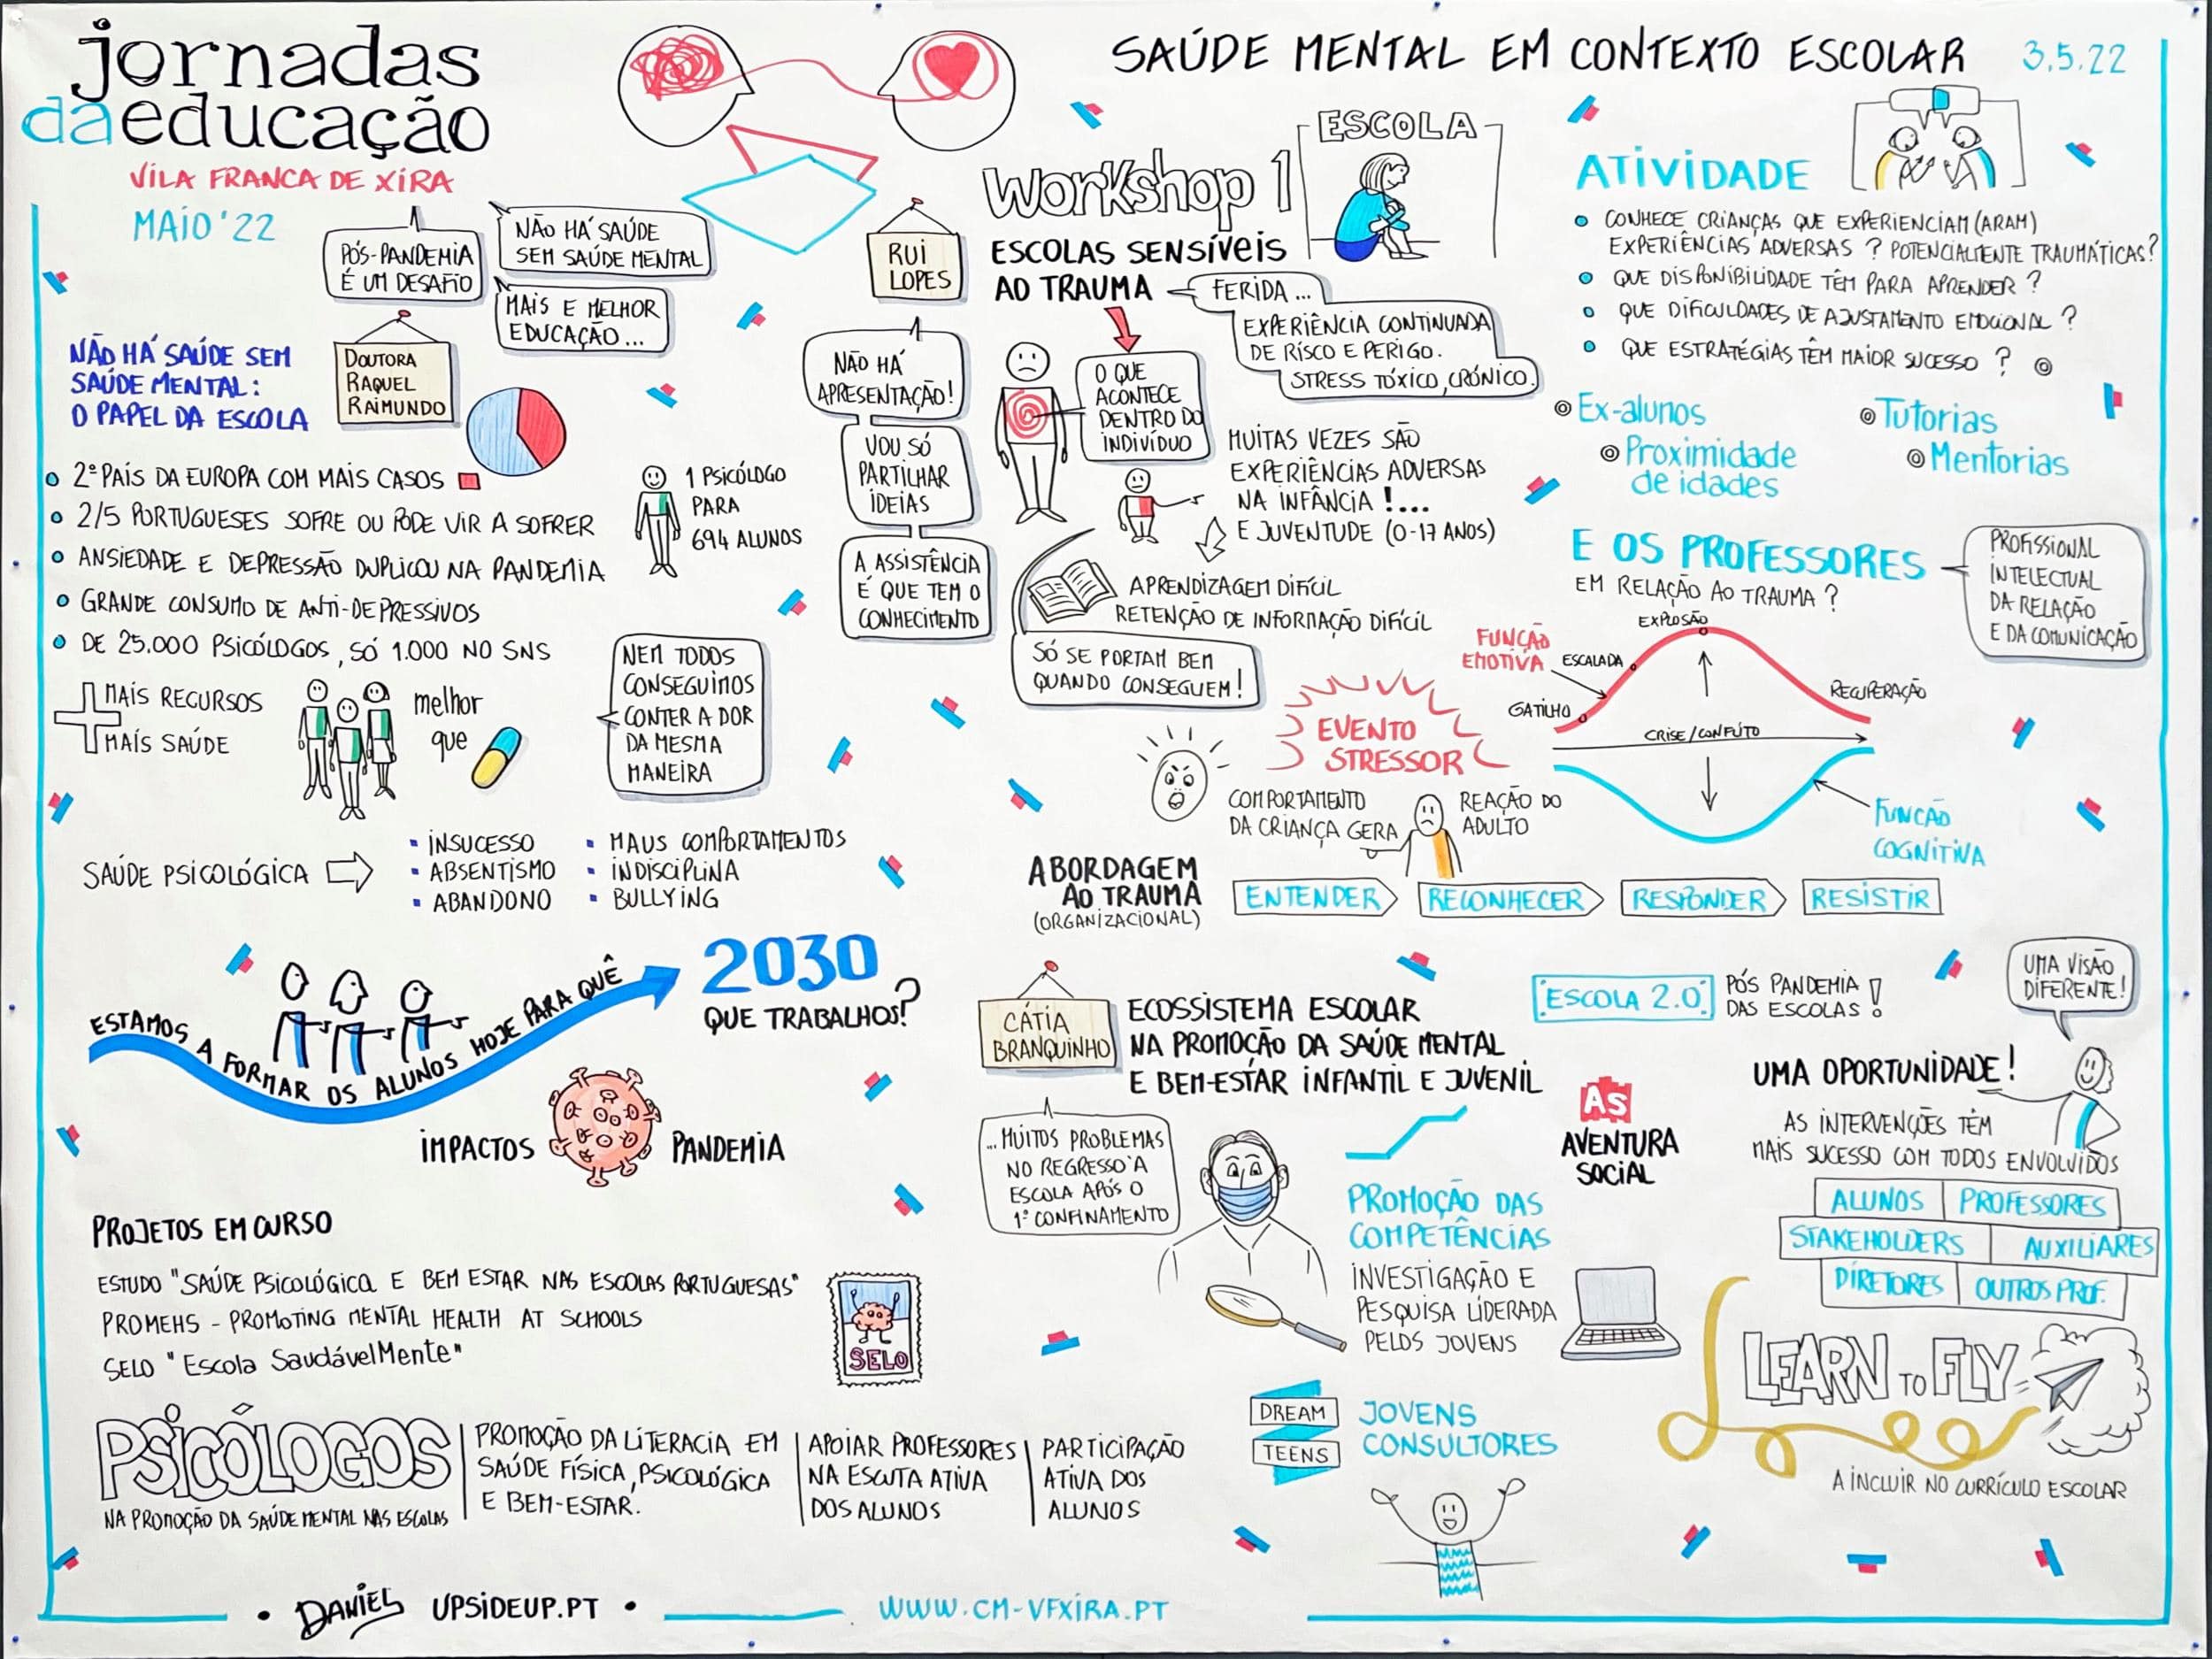 jornadas
daeducação
VILA FRANCA DE XIRA
MAIO '22
SAÚDE MENTAL EM CONTEXTO ESCOLAR 3.5.22
PÓS-PANDEMIA
É UM DESAFIO
NÃO HÁ SAÚDE
SEM SAÚDE MENTAL
MAIS E MELHOR
EDUCAÇÃO...
NÃO HÁ SAÚDE SEM
SAÚDE MENTAL:
O PAPEL DA ESCOLA
DOUTORA
RAQUEL
RAIMUNDO
2º PAÍS DA EUROPA COM MAIS CASOS
2/5 PORTUGUESES SOFRE OU PODE VIR A SOFRER
ANSIEDADE E DEPRESSÃO DUPLICOU NA PANDEMIA
GRANDE CONSUMO DE ANTI-DEPRESSIVOS
DE 25.000 PSICÓLOGOS, SÓ 1.000 NO SNS
1 PSICÓLOGO
PARA
694 ALUNOS
MAIS RECURSOS
MAIS SAÚDE
melhor
que
NEM TODOS
CONSEGUIMOS
CONTER A DOR
DA MESMA
MANEIRA
SAÚDE PSICOLÓGICA
INSUCESSO
ABSENTISMO
ABANDONO
MAUS COMPORTAMENTOS
INDISCIPLINA
BULLYING
ESTAMOS A FORMAR OS ALUNOS HOJE PARA QUÊ
2030
QUE TRABALHOS?
IMPACTOS PANDEMIA
PROJETOS EM CURSO
ESTUDO "SAÚDE PSICOLÓGICA E BEM ESTAR NAS ESCOLAS PORTUGUESAS"
PROMEHS - PROMOTING MENTAL HEALTH AT SCHOOLS
SELO "Escola SaudávelMente"
SELO
PSICÓLOGOS
NA PROMOÇÃO DA SAÚDE MENTAL NAS ESCOLAS
PROMOÇÃO DA LITERACIA EM
SAÚDE FÍSICA, PSICOLÓGICA
E BEM-ESTAR.
APOIAR PROFESSORES
NA ESCUTA ATIVA
DOS ALUNOS
PARTICIPAÇÃO
ATIVA DOS
ALUNOS
RUI
LOPES
NÃO HÁ
APRESENTAÇÃO!
VOU SÓ
PARTILHAR
IDEIAS
A ASSISTÊNCIA
É QUE TEM O
CONHECIMENTO
Workshop 1
ESCOLAS SENSÍVEIS
AO TRAUMA
ESCOLA
FERIDA...
EXPERIÊNCIA CONTINUADA
DE RISCO E PERIGO.
STRESS TÓXICO, CRÓNICO.
O QUE
ACONTECE
DENTRO DO
INDIVÍDUO
MUITAS VEZES SÃO
EXPERIÊNCIAS ADVERSAS
NA INFÂNCIA !....
E JUVENTUDE (0-17 ANOS)
APRENDIZAGEM DIFÍCIL
RETENÇÃO DE INFORMAÇÃO DIFÍCIL
SÓ SE PORTAM BEM
QUANDO CONSEGUEM!
EVENTO
STRESSOR
COMPORTAMENTO
DA CRIANÇA GERA
REAÇÃO DO
ADULTO
ATIVIDADE
CONHECE CRIANÇAS QUE EXPERIENCIAM (ARAM)
EXPERIÊNCIAS ADVERSAS ? POTENCIALMENTE TRAUMÁTICAS?
QUE DISPONIBILIDADE TÊM PARA APRENDER ?
QUE DIFICULDADES DE AJUSTAMENTO EMOCIONAL ?
QUE ESTRATÉGIAS TÊM MAIOR SUCESSO ?
Ex-alunos
Proximidade
de idades
Tutorias
Mentorias
E OS PROFESSORES
EM RELAÇÃO AO TRAUMA ?
PROFISSIONAL
INTELECTUAL
DA RELAÇÃO
E DA COMUNICAÇÃO
FUNÇÃO
EMOTIVA
GATILHO
ESCALADA
EXPLOSÃO
RECUPERAÇÃO
CRISE/CONFLITO
FUNÇÃO
COGNITIVA
ABORDAGEM
AO TRAUMA
(ORGANIZACIONAL)
ENTENDER RECONHECER RESPONDER RESISTIR
CÁTIA
BRANQUINHO
ECOSSISTEMA ESCOLAR
NA PROMOÇÃO DA SAÚDE MENTAL
E BEM-ESTAR INFANTIL E JUVENIL
ESCOLA 2.0
PÓS PANDEMIA
DAS ESCOLAS !
UMA VISÃO
DIFERENTE!
...MUITOS PROBLEMAS
NO REGRESSO À
ESCOLA APÓS O
1º CONFINAMENTO
AS
AVENTURA
SOCIAL
PROMOÇÃO DAS
COMPETÊNCIAS
INVESTIGAÇÃO E
PESQUISA LIDERADA
PELOS JOVENS
DREAM
TEENS
JOVENS
CONSULTORES
UMA OPORTUNIDADE!
AS INTERVENÇÕES TÊM
MAIS SUCESSO COM TODOS ENVOLVIDOS
ALUNOS PROFESSORES
STAKEHOLDERS AUXILIARES
DIRETORES OUTROS PROF.
LEARN TO FLY
A INCLUIR NO CURRÍCULO ESCOLAR
DANIEL UPSIDEUP.PT
WWW.CM-VFXIRA.PT